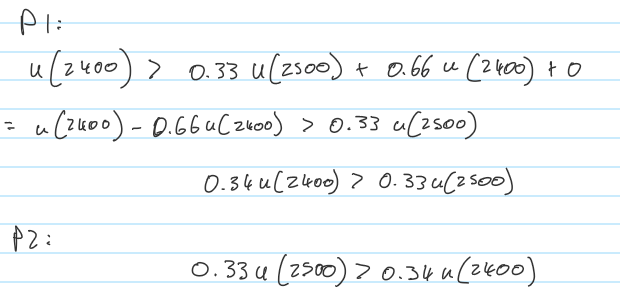 P1:
u(2400) > 0.33 u(2500) + 0.66 u(2400) + 0
= u(2400) - 0.66u(2400) > 0.33 u(2500)
0.34u(2400) > 0.33u(2500)
P2:
0.33u(2500) > 0.34u(2400)